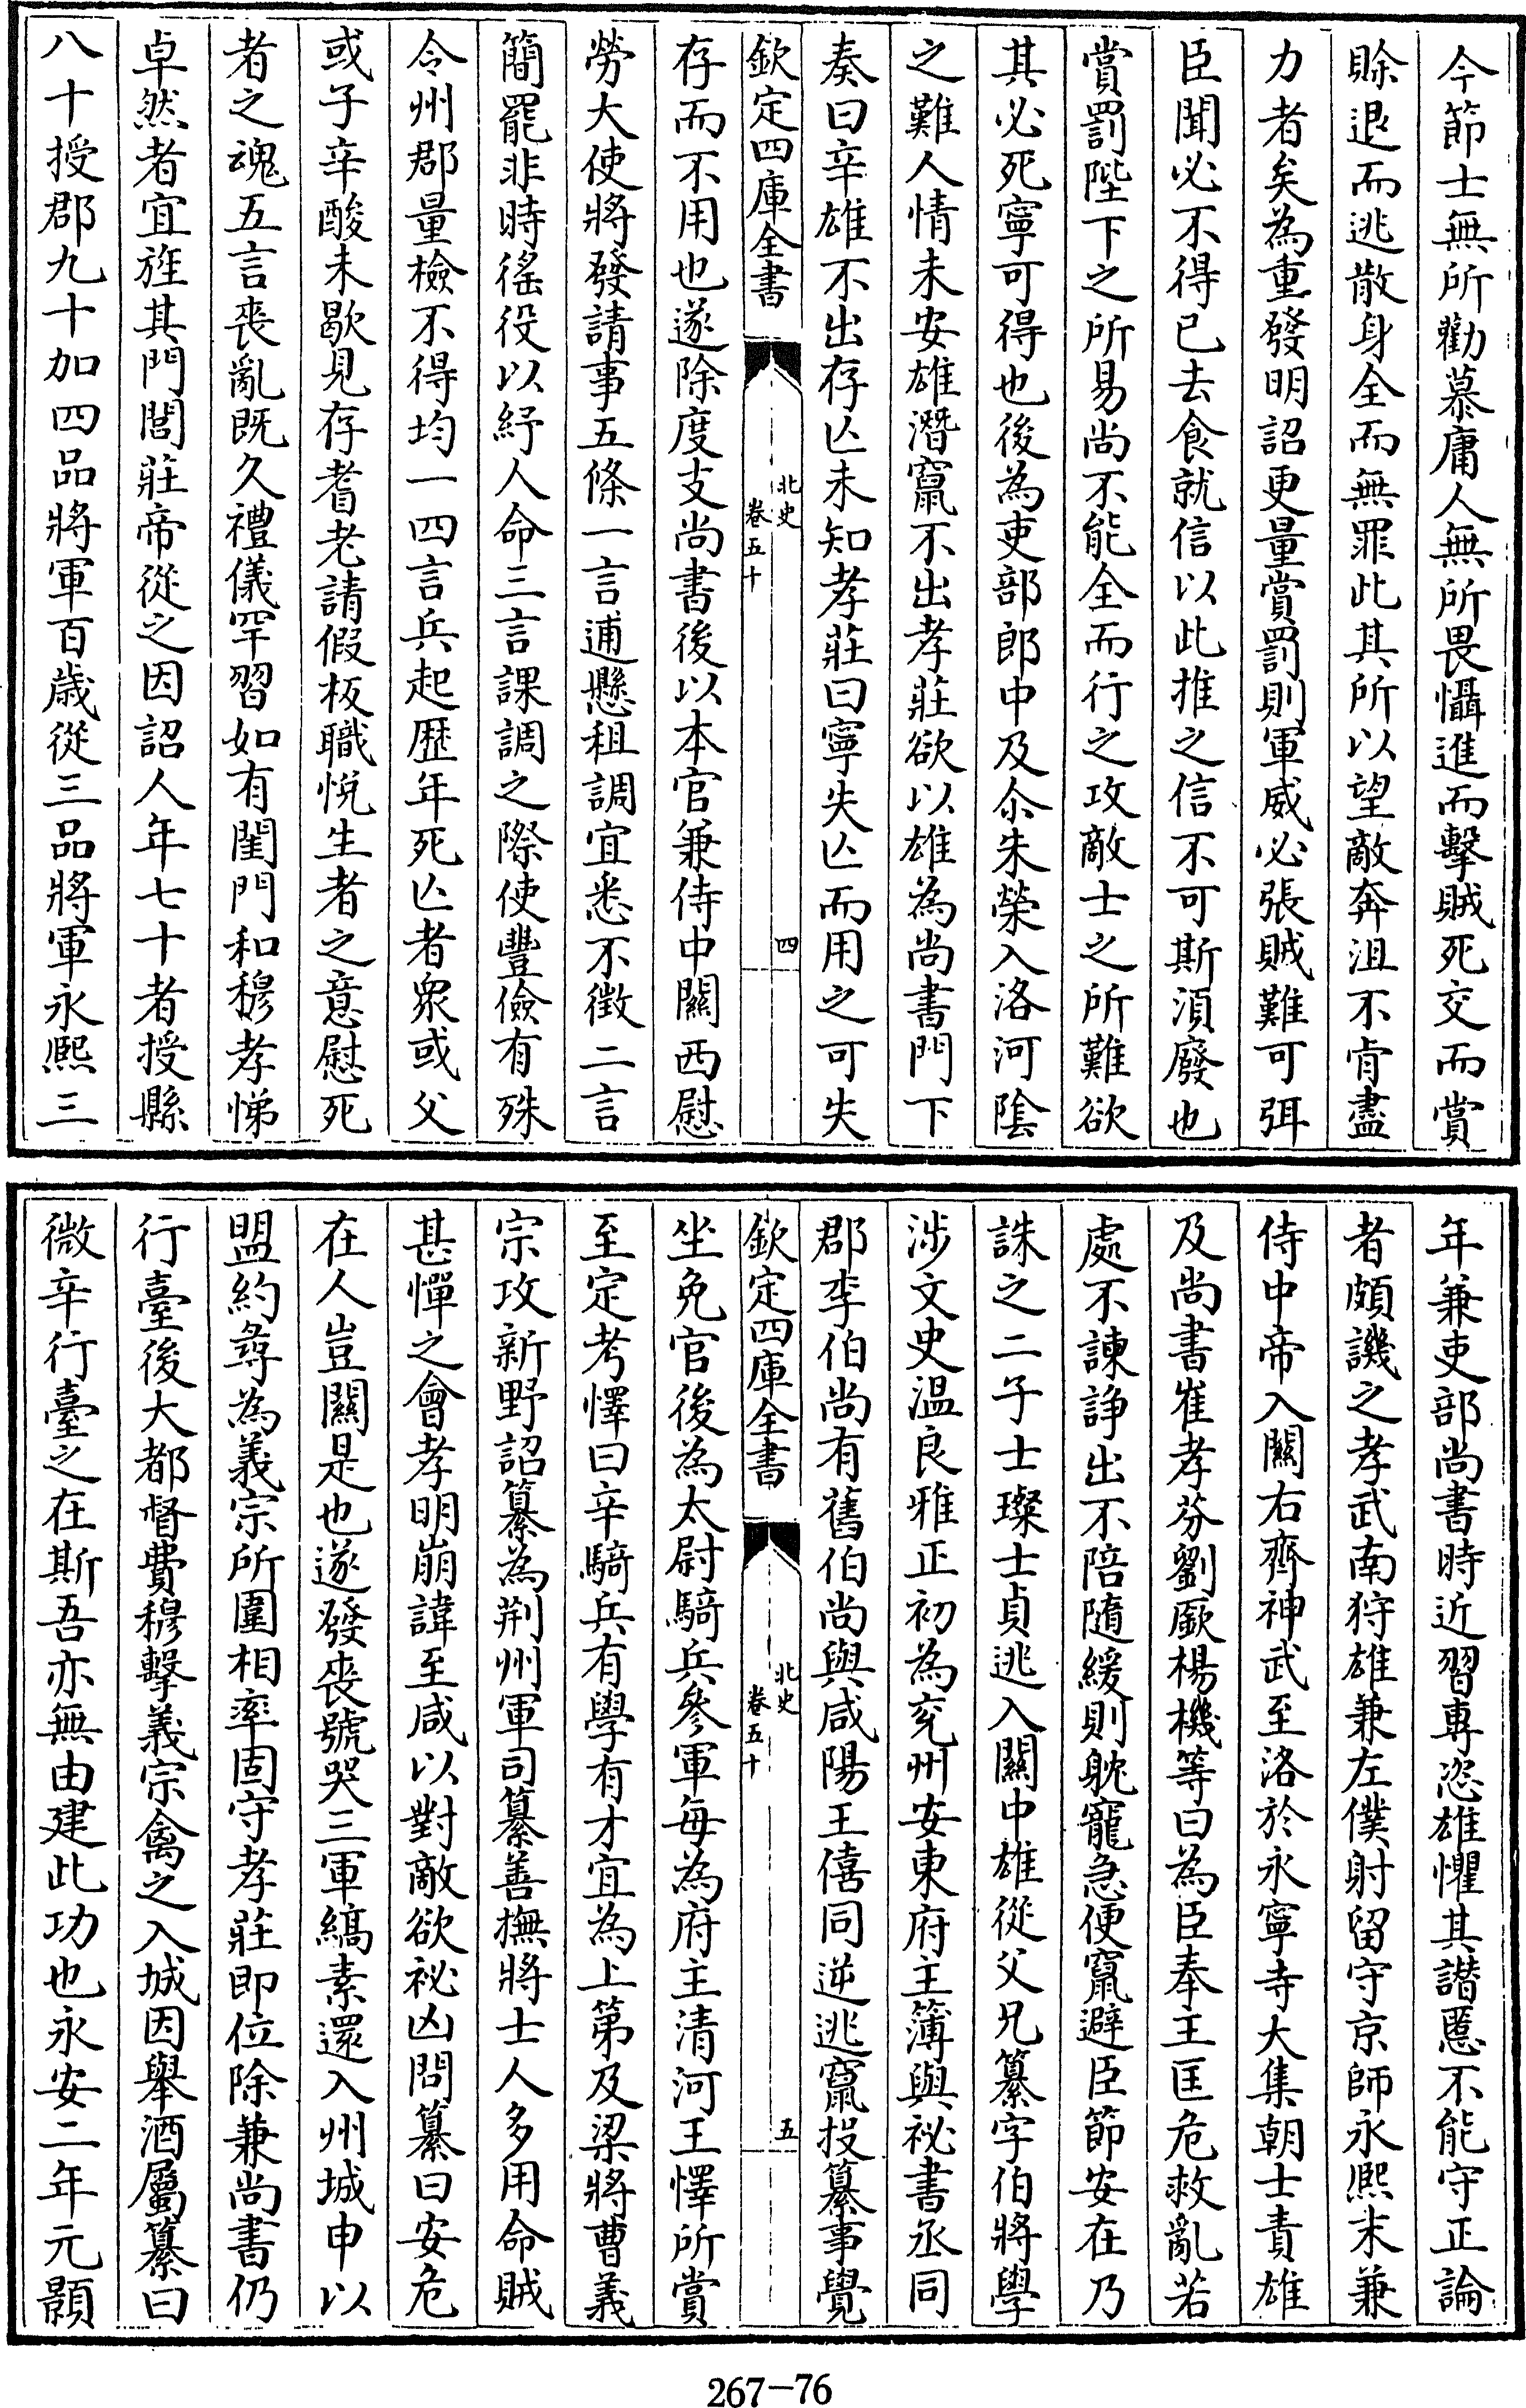 今節士無所勸慕庸人無所畏懾進而擊賊死交而賞
賖退而逃散身全而無罪此其所以望敵奔沮不肯盡
力者矣為重發明詔更量賞罰則軍威必張賊難可弭
臣聞必不得已去食就信以此推之信不可斯湏廢也
賞罰陛下之所易尚不能全而行之攻敵士之所難欲
其必死寧可得也後為吏部郎中及尒朱榮入洛河隂
之難人情未安雄潛竄不出孝莊欲以雄為尚書門下
奏曰辛雄不出存亾未知孝莊曰寧失亾而用之可失
欽定四庫全書
北史
卷五十
四
存而不用也遂除度支尚書後以本官兼侍中關西慰
勞大使將發請事五條一言逋懸租調宜悉不徴二言
簡罷非時徭役以紓人命三言課調之際使豐儉有殊
令州郡量檢不得均一四言兵起歴年死亾者衆或父
或子辛酸未歇見存耆老請假板職悅生者之意慰死
者之魂五言喪亂既久禮儀罕習如有閨門和穆孝悌
卓然者宜旌其門閭莊帝從之因詔人年七十者授縣
八十授郡九十加四品將軍百歲從三品將軍永熙三
年兼吏部尚書時近習專恣雄懼其譖慝不能守正論
者頗譏之孝武南狩雄兼左僕射留守京師永熙末兼
侍中帝入關右齊神武至洛於永寧寺大集朝士責雄
及尚書崔孝芬劉廞楊機等曰為臣奉主匡危救亂若
處不諫諍出不陪隨緩則躭寵急便竄避臣節安在乃
誅之二子士璨士貞逃入關中雄從父兄纂字伯將學
涉文史温良雅正初為兖州安東府主簿與祕書丞同
郡李伯尚有舊伯尚與咸陽王僖同逆逃竄投纂事覺
欽定四庫全書
北史
卷五十
五
坐免官後為太尉騎兵參軍每為府主清河王懌所賞
至定考懌曰辛騎兵有學有才宜為上第及梁將曹義
宗攻新野詔纂為荆州軍司纂善撫將士人多用命賊
甚憚之會孝明崩諱至咸以對敵欲祕凶問纂曰安危
在人豈關是也遂發喪號哭三軍縞素還入州城申以
盟約尋為義宗所圍相率固守孝莊即位除兼尚書仍
行臺後大都督費穆擊義宗禽之入城因舉酒屬纂曰
微辛行臺之在斯吾亦無由建此功也永安二年元顥
267-76